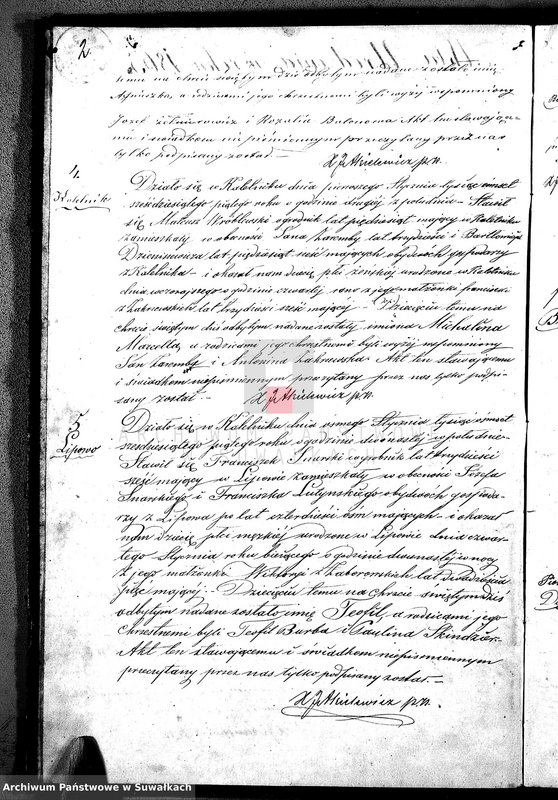 2
temu na chrzcie świętym dziś odbytym nadane zostało imię
Agnieszka, a rodzicami jego chrzestnemi byli wyżej wspomniony
Józef i Rozalia Akt ten stawające-
mu i świadkom niepiśmiennym przeczytany przez nas
tylko podpisany został.—
X J Akielewicz p.n.
4
Kaletnik
Działo się w Kaletniku dnia pierwszego Stycznia tysiąc ośmset
sześdziesiątego piątego roku o godzinie drugiej z południa — Stawił
się Mateusz Wróblewski ogrodnik lat pięćdziesiąt mający w Kaletniku
zamieszkały w obecności Jana Zaremby lat trzydzieści i Bartłomieja
lat pięćdziesiąt sześć mających obydwóch gospodarzy
z Kaletnika — i okazał nam dziecię płci żeńskiej urodzone w Kaletniku
dnia wczorajszego o godzinie czwartej rano z jego małżonki Franciszki
z Zakrzewskich lat trzydzieści sześć mającej — Dziecięciu temu na
chrzcie świętym dziś odbytym nadane zostały imiona Michalina
Marcella, a rodzicami jego chrzestnemi byli wyżej wspomniony
Jan Zaremba i Antonina Zakrzewska — Akt ten stawającemu
i świadkom niepiśmiennym przeczytany przez nas tylko podpi-
sany został —
X J Akielewicz p.n.
5
Lipowo
Działo się w Kaletniku dnia ósmego Stycznia tysiąc ośmset
sześdziesiątego piątego roku o godzinie dwónastej w południe
Stawił się Franciszek Snarski wyrobnik lat trzydzieści
sześć mający w Lipowie zamieszkały w obecności Józefa
Snarskiego i Franciszka Lutyńskiego obydwóch gospoda-
rzy z Lipowa po lat czterdzieści ośm mających — i okazał
nam dziecię płci męzkiej urodzone w Lipowie dnia czwar-
tego Stycznia roku bieżącego o godzinie dwónastej w nocy
z jego małżonki Wiktoryi z Zaborowskich lat dwadzieścia
pięć mającej — Dziecięciu temu na chrzcie świętym dziś
odbytym nadane zostało imię Teofil, a rodzicami jego
chrzestnemi byli Teofil Burba i Paulina Skindzier —
Akt ten stawającemu i świadkom niepiśmiennym
przeczytany przez nas tylko podpisany został —
X J Akielewicz p.n.
Archiwum Państwowe w Suwałkach